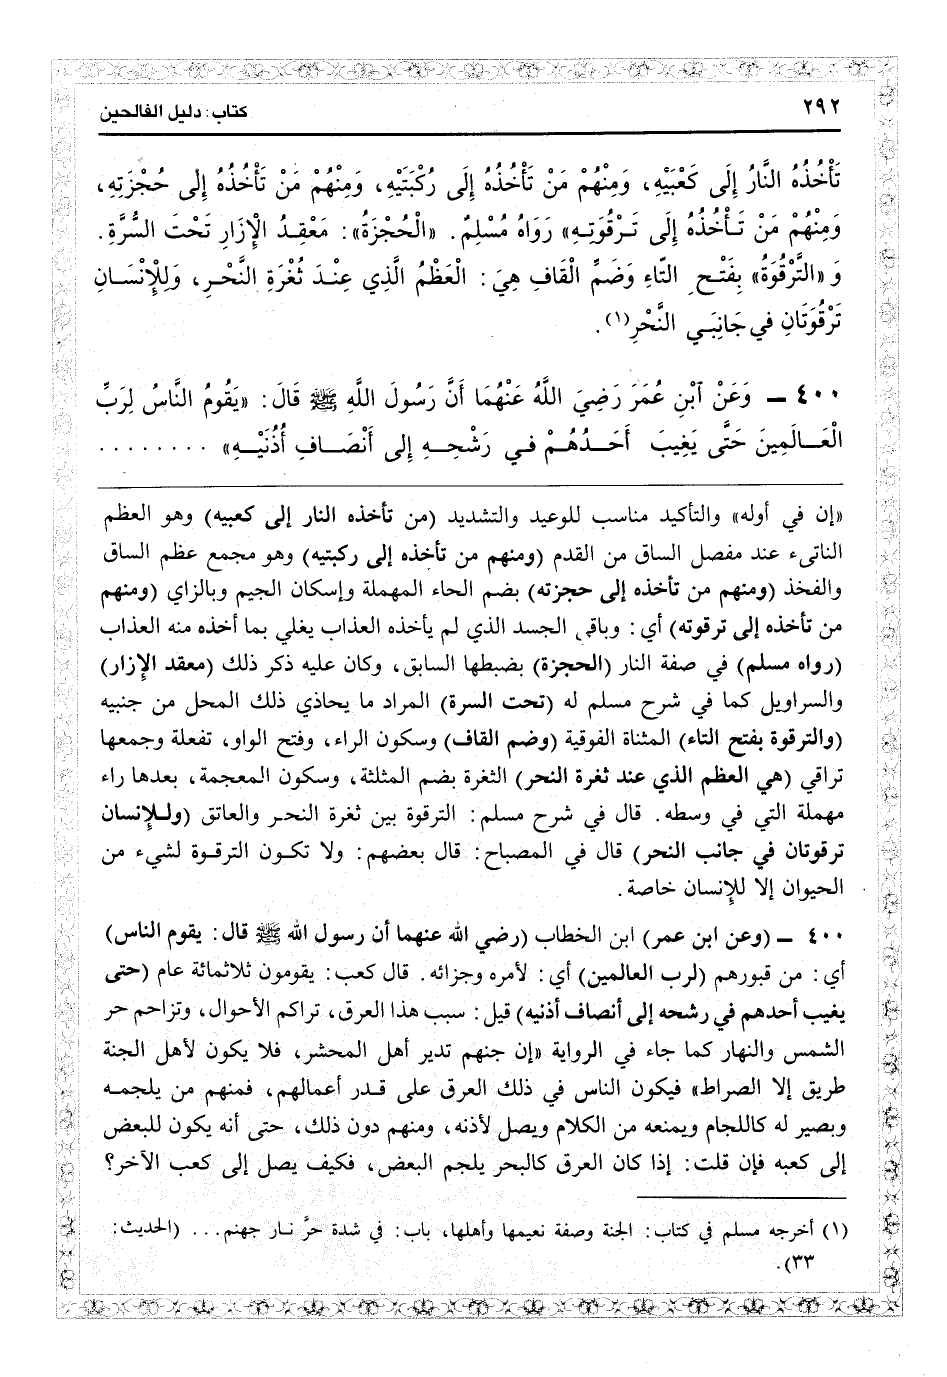 ٢٩٢
كتاب: دليل الفالحين
تَأْخُذُهُ النَّارُ إِلَى كَعْبَيْهِ، وَمِنْهُمْ مَنْ تَأْخُذُهُ إِلَى رُكْبَتَيْهِ، وَمِنْهُمْ مَنْ تَأْخُذُهُ إِلى حُجْزَتِهِ،
وَمِنْهُمْ مَنْ تَأْخُذُهُ إِلَى تَرْقُوَتِهِ» رَوَاهُ مُسْلِمٌ. «الْحُجْزَةُ»: مَعْقِدُ الْإِزَارِ تَحْتَ السُّرَّةِ.
وَ «التَّرْقُوَةُ» بِفَتْحِ التَّاءِ وَضَمِّ الْقَافِ هِيَ: الْعَظْمُ الَّذِي عِنْدَ ثُغْرَةِ النَّحْرِ، وَلِلْإِنْسَانِ
تَرْقُوَتَانِ في جَانِبَي النَّحْرِ(١).
٤٠٠ – وَعَنْ ٱبْنِ عُمَرَ رَضِيَ اللَّهُ عَنْهُمَا أَنَّ رَسُولَ اللَّهِ ﷺ قَالَ: «يَقُومُ النَّاسُ لِرَبِّ
الْعَالَمِينَ حَتَّى يَغِيبَ أَحَدُهُمْ فِي رَشْحِهِ إِلى أَنْصَافِ أُذُنَيْهِ» ........
«إن في أوله» والتأكيد مناسب للوعيد والتشديد (من تأخذه النار إلى كعبيه) وهو العظم
الناتىء عند مفصل الساق من القدم (ومنهم من تأخذه إلى ركبتيه) وهو مجمع عظم الساق
والفخذ (ومنهم من تأخذه إلى حجزته) بضم الحاء المهملة وإسكان الجيم وبالزاي (ومنهم
من تأخذه إلى ترقوته) أي: وباقي الجسد الذي لم يأخذه العذاب يغلي بما أخذه منه العذاب
(رواه مسلم) في صفة النار (الحجزة) بضبطها السابق، وكان عليه ذكر ذلك (معقد الإزار)
والسراويل كما في شرح مسلم له (تحت السرة) المراد ما يحاذي ذلك المحل من جنبيه
(والترقوة بفتح التاء) المثناة الفوقية (وضم القاف) وسكون الراء، وفتح الواو، تفعلة وجمعها
تراقي (هي العظم الذي عند ثغرة النحر) الثغرة بضم المثلثة، وسكون المعجمة، بعدها راء
مهملة التي في وسطه. قال في شرح مسلم: الترقوة بين ثغرة النحر والعاتق (وللإنسان
ترقوتان في جانب النحر) قال في المصباح: قال بعضهم: ولا تكون الترقوة لشيء من
الحيوان إلا للإنسان خاصة.
٤٠٠ – (وعن ابن عمر) ابن الخطاب (رضي الله عنهما أن رسول الله ﷺ قال: يقوم الناس)
أي: من قبورهم (لرب العالمين) أي: لأمره وجزائه. قال كعب: يقومون ثلاثمائة عام (حتى
يغيب أحدهم في رشحه إلى أنصاف أذنيه) قيل: سبب هذا العرق، تراكم الأحوال، وتزاحم حر
الشمس والنهار كما جاء في الرواية «إن جنهم تدير أهل المحشر، فلا يكون لأهل الجنة
طريق إلا الصراط» فيكون الناس في ذلك العرق على قدر أعمالهم، فمنهم من يلجمه
وبصير له كاللجام ويمنعه من الكلام ويصل لأذنه، ومنهم دون ذلك، حتى أنه يكون للبعض
إلى كعبه فإن قلت: إذا كان العرق كالبحر يلجم البعض، فكيف يصل إلى كعب الآخر؟
(١) أخرجه مسلم في كتاب: الجنة وصفة نعيمها وأهلها، باب: في شدة حرَّ نار جهنم... (الحديث:
٣٣).